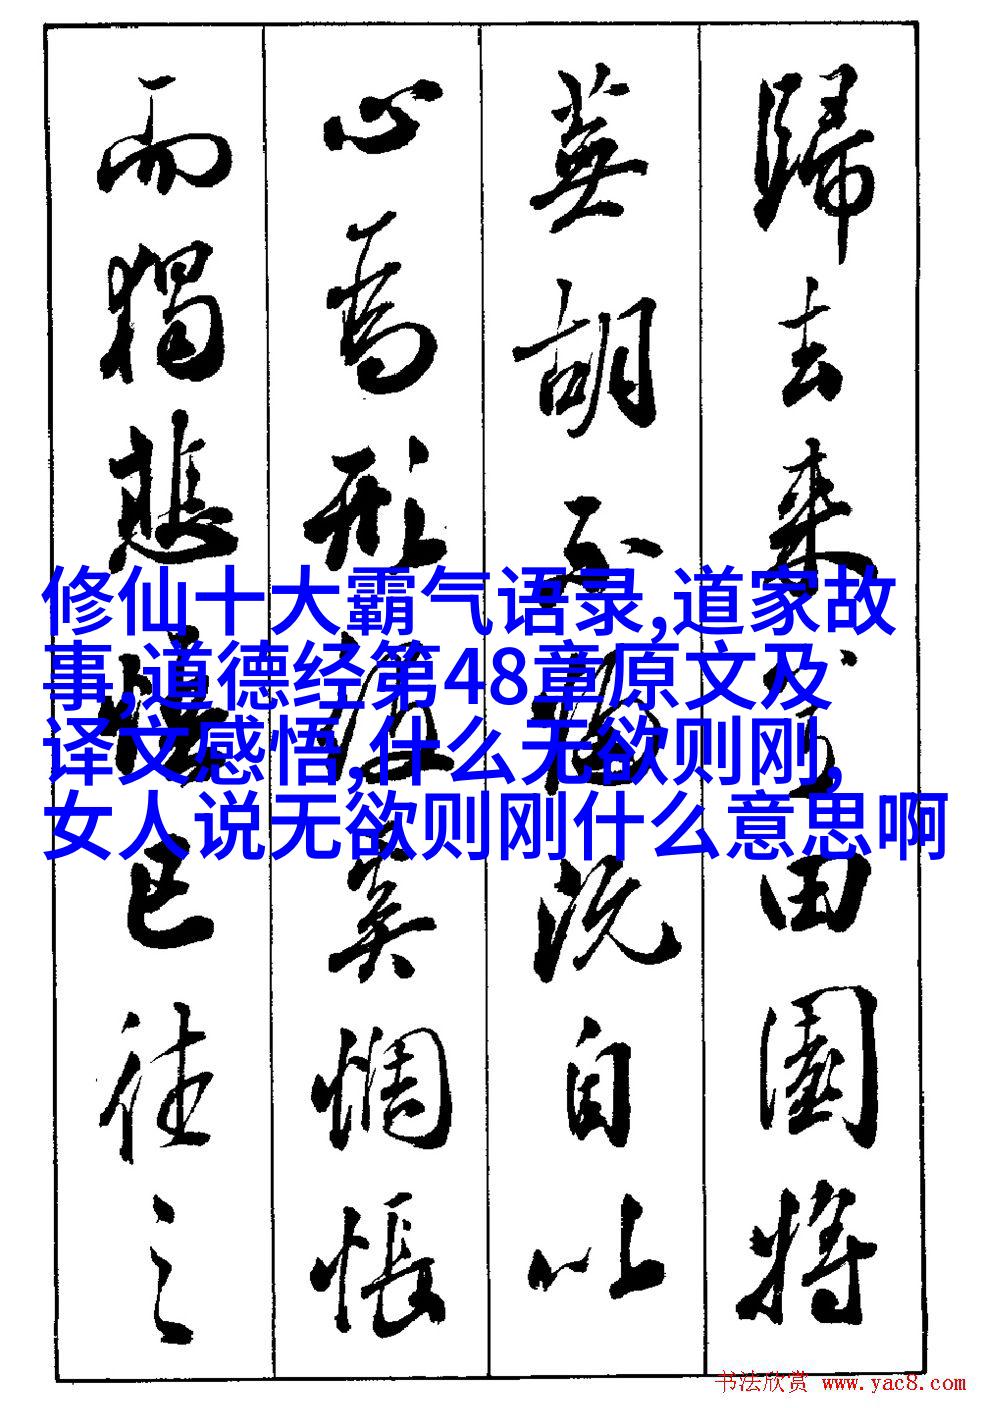 歸去來兮田園將
蕪胡不歸既自以
心為形役奚惆悵
而獨悲悟已往之
修仙十大霸气语录,道家故
事,道德经第48章原文及
译文感悟,什么无欲则刚,
女人说无欲则刚什么意思啊
书法欣赏 www.yac8.com